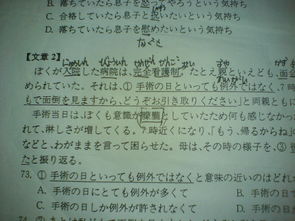 B. 落ちていたら息子を
やろうという気持ち
C. 合格していたら息子と
いたいという気持ち
D. 落ちていたら息子を慰めたいという気持ち
なぐさ
【文章 2】
ぼくが入院した病院は、完全看護制。たとえ親といえども、面
められていた。それは、①手術の日といっても例外ではなく、7
もで面倒を見ますから、どうぞお引き取りください」と両親とも
手術当日は、ぼくも意識が朦朧としていたため何も感じなかっ
て、淋しさが増してくる。7時近くになり、「もう、帰るからね」
などと、わがままを言って困らせた。母は、その時の様子を、③
たと振り返る。
73. ①手術の日といっても例外ではなくと意味の近いのはどれ
A. 手術の日にとても例外が多くて
B. 手術の
C. 手術の日しか例外が許されなくて
D. 手術の日